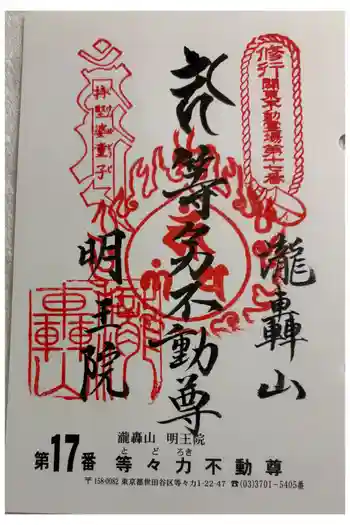 修行
関東不動霊場第十七番
瀧轟山
等々力不動尊
持堅婆童子
明王院
瀧轟山 明王院
第17番 等々力不動尊
とどろき
〒158-0082 東京都世田谷区等々力1-22-47 ☎(03)3701-5405番